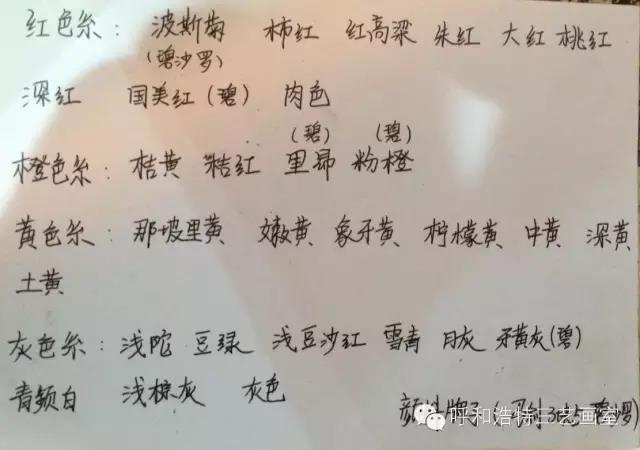 红色系：波斯菊 柿红 红高粱 朱红 大红 桃红
(碧沙罗)
深红 国美红(碧) 肉色
(碧) (碧)
橙色系：桔黄 桔红 里昂 粉橙
黄色系：那坡里黄 嫩黄 象牙黄 柠檬黄 中黄 深黄
土黄
灰色系：浅陀 豆绿 浅豆沙红 雪青 月灰 牙黄灰(碧)
青频白 浅棕灰 灰色
颜 牌子
呼和浩特三艺画室